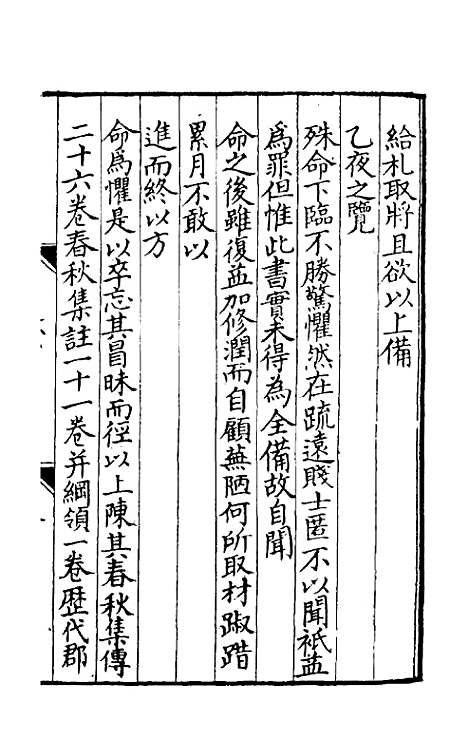 給札取將且欲以上備
乙夜之覽
殊命下臨不勝驚懼然在疏遠賤士匿不以聞祇益
爲罪但惟此書實未得為全備故自聞
命之後雖復益加修潤而自顧蕪陋何所取材踧踖
累月不敢以
進而終以方
命爲懼是以卒忘其冒昧而徑以上陳其春秋集傳
二十六卷春秋集註一十一卷并綱領一卷歴代郡